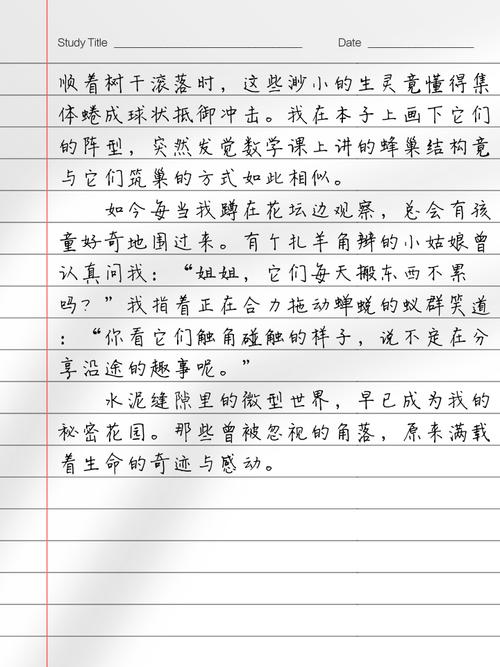 Study Title
Date
顺着树干滚落时，这些渺小的生灵竟懂得集
体蜷成球状抵御冲击。我在本子上画下它们
的阵型，突然发觉数学课上讲的蜂巢结构竟
与它们筑巢的方式如此相似。
如今每当我蹲在花坛边观察，总会有孩
童好奇地围过来。有个扎羊角辫的小姑娘曾
认真问我：“姐姐，它们每天搬东西不累
吗？”我指着正在合力拖动蝉蜕的蚁群笑道
：“你看它们触角碰触的样子，说不定在分
享沿途的趣事呢。”
水泥缝隙里的微型世界，早已成为我的
秘密花园。那些曾被忽视的角落，原来满载
着生命的奇迹与感动。